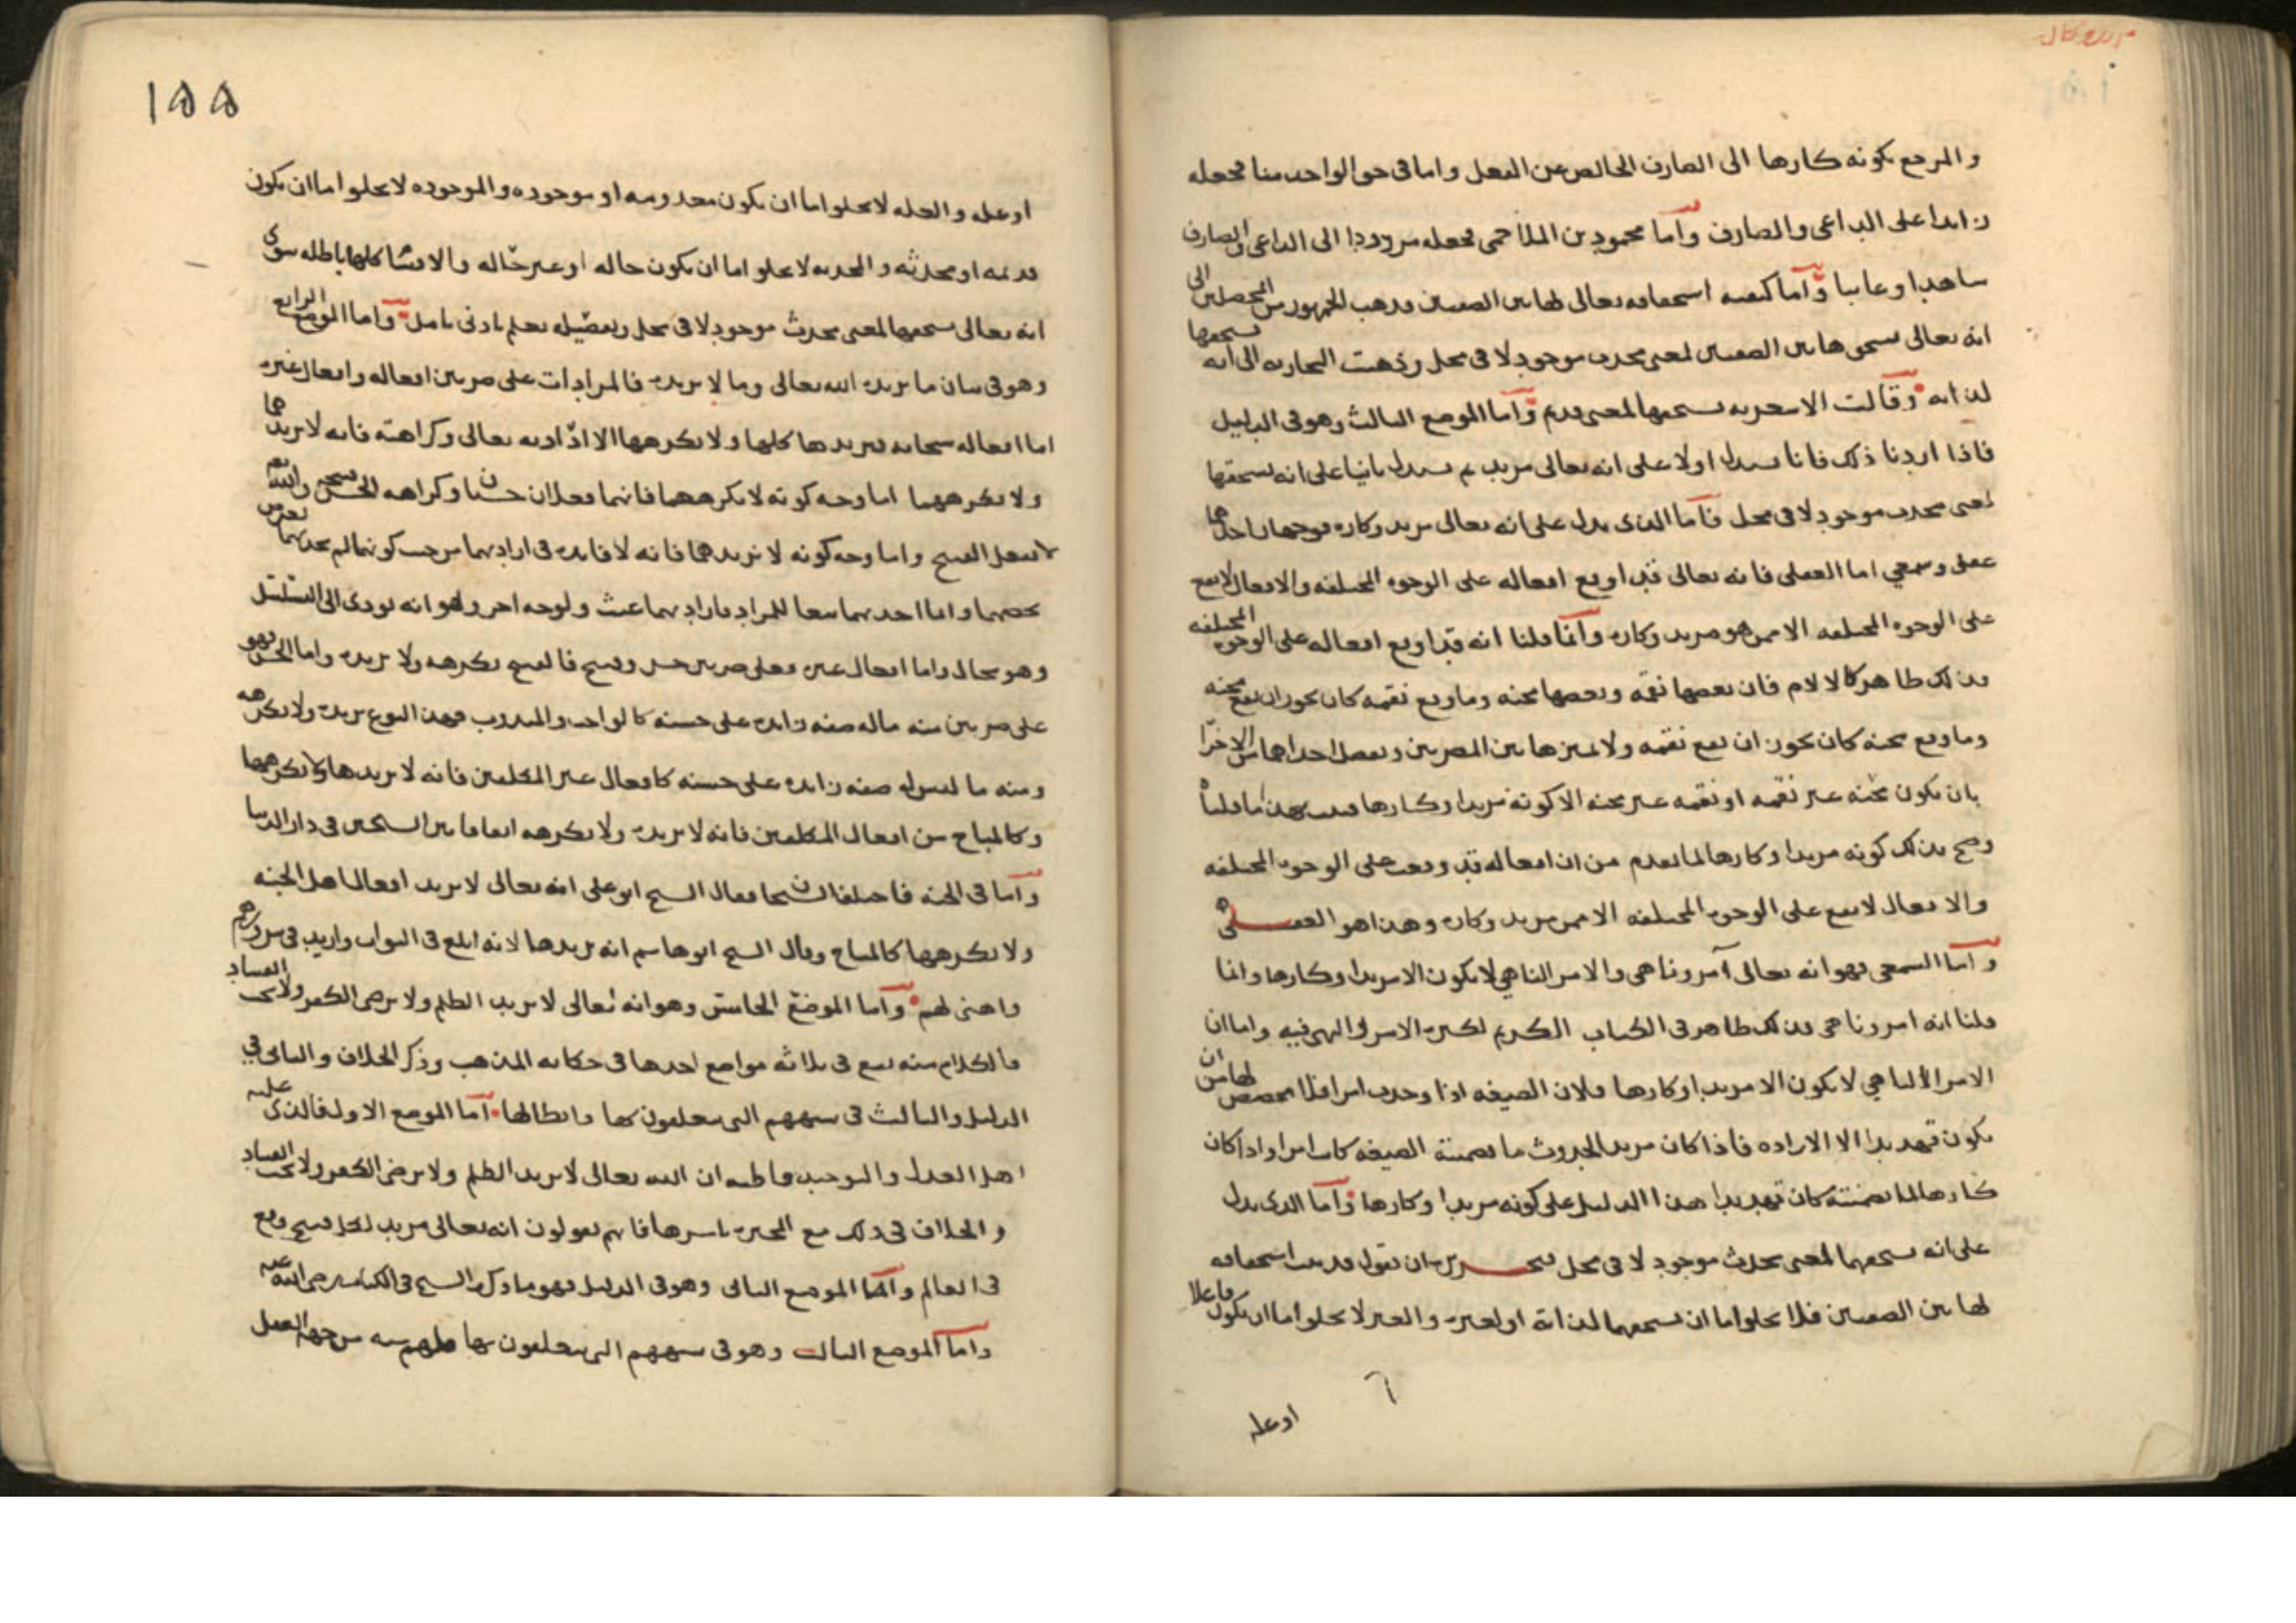 والمرجع بكونه كارها الى الصارف الخالص عن الفعل واما في حق الواحد منا فجعله
زايدا على الداعي والصارف وأما محمود بن الملاحمي فجعله مردودا الى الداعي والصارف
شاهدا وغايبا وأما كيفية استحقاقه تعالى لهاتين الصفتين فذهب الجمهور من المحصلين الى
انه تعالى يستحق هاتين الصفتين لمعنى محدث موجود لا في محل وذهبت النجارية الى انه يستحقها
لذاته وقالت الاشعرية يستحقها لمعنى قديم وأما الموضع الثالث وهو في الدليل
فاذا اردنا ذلك فانا نستدل اولا على انه تعالى مريد ثم نستدل ثانيا على انه يستحقها
لمعنى محدث موجود لا في محل فأما الذي يدل على انه تعالى مريد وكاره فوجهان احدهما
عقلي وسمعي اما العقلي فانه تعالى قد اوقع افعاله على الوجوه المختلفة والافعال لا تقع
على الوجوه المختلفة الا ممن هو مريد وكاره وأنما قلنا انه قد اوقع افعاله على الوجوه المختلفة
فذلك ظاهر كالالام فان بعضها نقمة وبعضها محنة وما وقع نقمة كان يجوز ان يقع محنة
وما وقع محنة كان يجوز ان يقع نقمة ولا مميز هاتين المضرتين ويفصل احداهما من الاخرى
بان يكون محنة غير نقمة او نقمة غير محنة الا كونه مريدا وكارها فثبت بهذا ما قلناه
وصح بذلك كونه مريدا وكارها لما تقدم من ان افعاله قد وقعت على الوجوه المختلفة
والافعال لا تقع على الوجوه المختلفة الا ممن مريد وكاره وهذا هو العقلي
وأما السمعي فهو انه تعالى آمر وناهي والامر الناهي لا يكون الا مريدا وكارها وانما
قلنا انه امر وناهي فذلك ظاهر في الكتاب الكريم لكثرة الامر والنهي فيه واما ان
الامر الناهي لا يكون الا مريدا وكارها فلان الصيغة اذا وجدت امرا فلا مخصص لها من ان
يكون تهديدا الا الارادة فاذا كان مريدا لحدوث ما تضمنته الصيغة كانت امرا واذا كان
كارها لما تضمنته كان تهديدا هذا الدليل على كونه مريدا وكارها وأما الذي يدل
على انه يستحقهما لمعنى محدث موجود لا في محل فتحريره ان نقول قد ثبت استحقاقه
لهاتين الصفتين فلا يخلو اما ان يستحقهما لذاته او لغيره والغير لا يخلو اما ان يكون فاعلا
او علة
١٥٥
او علة والعلة لا تخلو اما ان تكون معدومة او موجودة والموجودة لا تخلو اما ان تكون
قديمة او محدثة والمحدثة لا تخلو اما ان تكون حالة او غير حالة والاقسام كلها باطلة سوى
انه تعالى يستحقها لمعنى محدث موجود لا في محل وتفصيله يعلم بادنى تامل وأما الموضع الرابع
وهو في بيان ما يريده الله تعالى وما لا يريده فالمرادات على ضربين افعاله وافعال غيره
اما افعاله سبحانه فيريدها كلها ولا يكرهها الا ارادته تعالى وكراهته فانه لا يريدهما
ولا يكرههما اما وجه كونه لا يكرههما فانهما فعلان حسنان وكراهه الحسن قبيح والله تعالى
لا يفعل القبيح واما وجه كونه لا يريدهما فانه لا فائدة في ارادتهما من حيث كونهما لم يحدثهما لغرض
يخصهما وانما احدثهما تبعا للمراد فارادتهما عبث ولوجه اخر وهو انه يودي الى التسلسل
وهو محال واما افعال غيره فعلى ضربين حسن وقبيح فالقبيح يكرهه ولا يريده واما الحسن فهو
على ضربين منه ماله صفة زايدة على حسنه كالواجب والمندوب فهذا النوع يريده ولا يكرهه
ومنه ما ليس له صفة زايدة على حسنه كافعال غير المكلفين فانه لا يريدها ولا يكرهها
وكالمباح من افعال المكلفين فانه لا يريده ولا يكرهه اتفاقا بين الشيخين في دار الدنيا
وأما في الجنة فاختلفا الشيخان فقال الشيخ ابو علي انه تعالى لا يريد افعال اهل الجنة
ولا يكرهها كالمباح وقال الشيخ ابو هاشم انه يريدها لانه ابلغ في الثواب وازيد في سرورهم
واهنى لهم وأما الموضع الخامس وهو انه تعالى لا يريد الظلم ولا يرضى الكفر ولا يحب الفساد
فالكلام منه يقع في ثلاثة مواضع احدها في حكاية المذهب وذكر الخلاف والثاني في
الدليل والثالث في شبههم التي يتعلقون بها وابطالها أما الموضع الاول فالذي عليه
اهل العدل والتوحيد قاطبة ان الله تعالى لا يريد الظلم ولا يرضى الكفر ولا يحب الفساد
والخلاف في ذلك مع المجبرة باسرها فانهم يقولون انه تعالى مريد لكل قبيح وقع
في العالم وأما الموضع الثاني وهو في الدليل فهو ما ذكره الشيخ في الكتاب رضي الله عنه
وأما الموضع الثالث وهو في شبههم التي يتعلقون بها فلهم شبه من جهة العقل